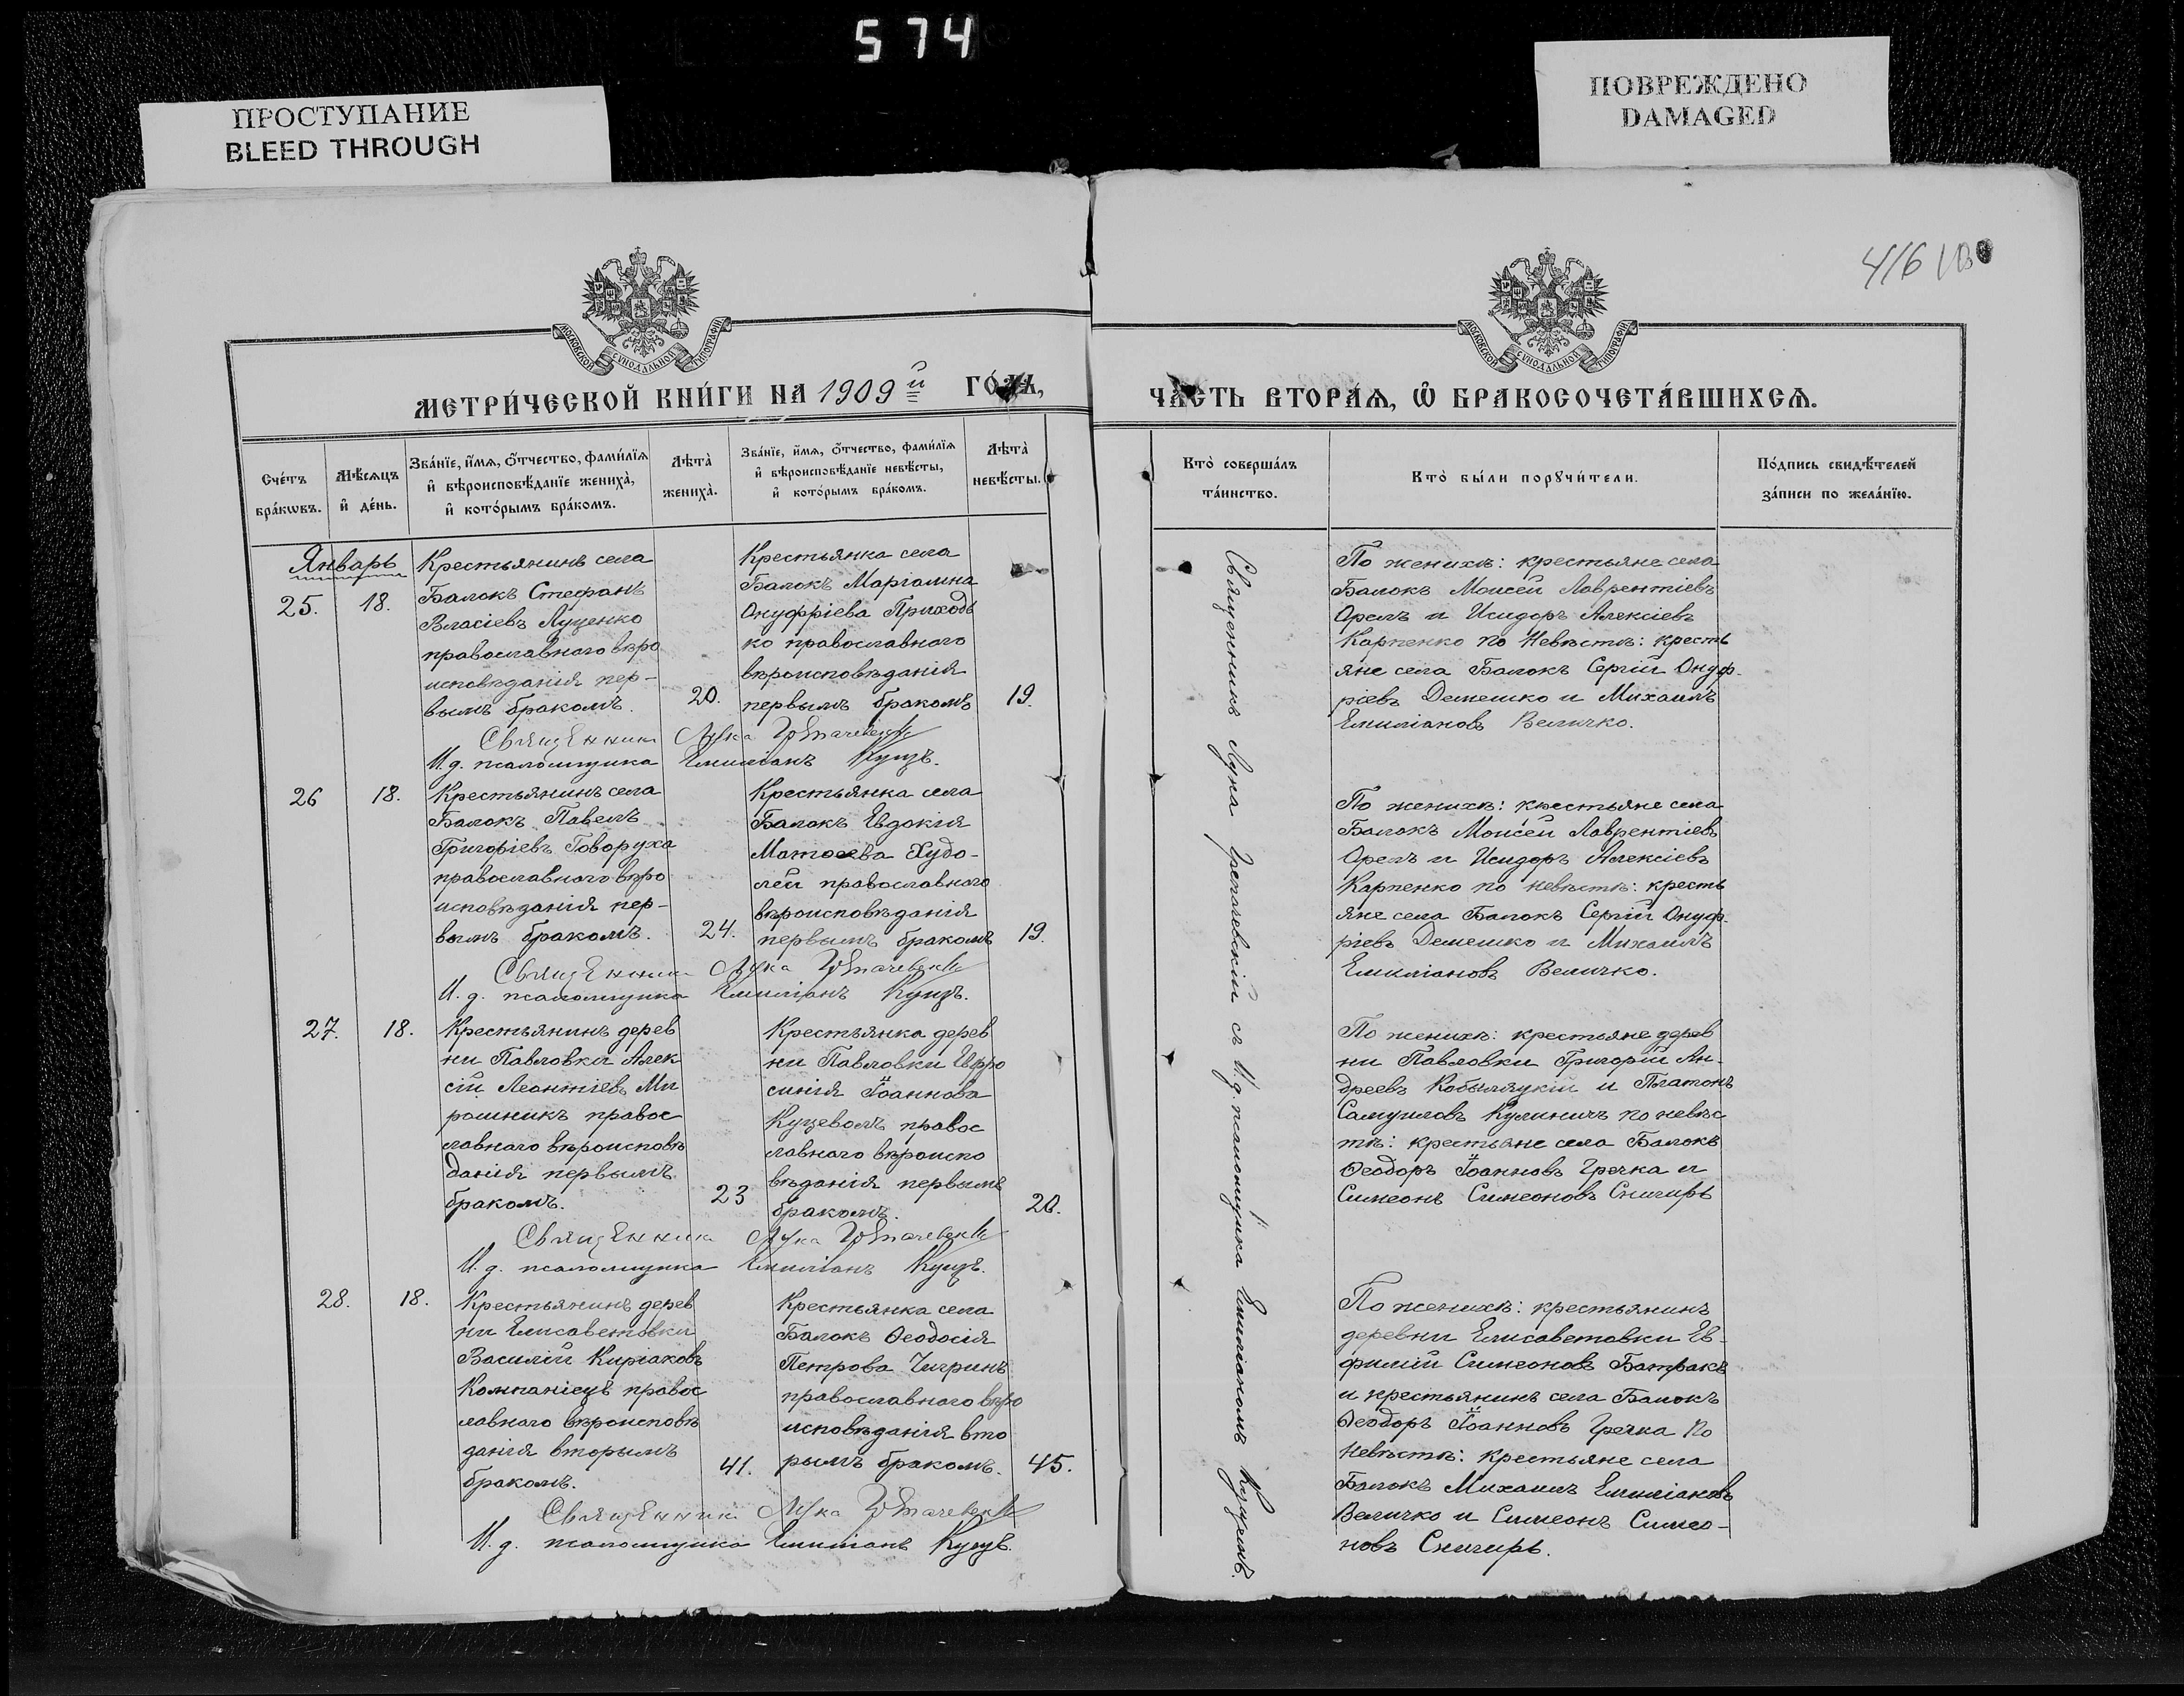 574
ПРОСТУПАНИЕ
BLEED THROUGH
ПОВРЕЖДЕНО
DAMAGED
416
МОСКОВСКОЙ СѴНОДАЛЬНОЙ ТИПОГРАФІИ
МЕТРИ́ЧЕСКОЙ КНИ́ГИ НА 1909й ГО́ДЪ,
Сче́тъ
бра́кѡвъ.
Мѣ́сяцъ
и҆ де́нь.
Зва́нїе, и҆́мѧ, ѻ҆́тчество, фами́лїѧ
и҆ вѣроисповѣ́данїе жениха̀,
и҆ кото́рымъ бра́комъ.
Лѣта̀
жениха̀.
Зва́нїе, и҆́мѧ, ѻ҆́тчество, фами́лїѧ
и҆ вѣроисповѣ́данїе невѣ́сты,
и҆ кото́рымъ бра́комъ.
Лѣта̀
невѣ́сты.
Январь
25.
18.
Крестьянинъ села
Балокъ Стефанъ
Власіевъ Луценко
православнаго вѣро
исповѣданія пер-
вымъ бракомъ.
20.
Крестьянка села
Балокъ Маріамна
Онуфріева Приходь
ко православнаго
вѣроисповѣданія
первымъ бракомъ
19.
Священникъ Лука
И.д. псаломщика Емиліанъ Куцъ.
26
18.
Крестьянинъ села
Балокъ Павелъ
Григоріевъ Говоруха
православнаго вѣро
исповѣданія пер-
вымъ бракомъ.
24.
Крестьянка села
Балокъ Евдокія
Матѳеева Худо-
лей православнаго
вѣроисповѣданія
первымъ бракомъ
19.
Священникъ Лука
И.д. псаломщика Емиліанъ Куцъ.
27.
18.
Крестьянинъ дерев
ни Павловки Алек
сій Леонтіевъ Ми
рошникъ правос
лавнаго вѣроисповѣ
данія первымъ
бракомъ.
23
Крестьянка дерев
ни Павловки Евфро
синія Іоаннова
Куцеволъ правос
лавнаго вѣроиспо
вѣданія первымъ
бракомъ.
20.
Священникъ Лука
И.д. псаломщика Емиліанъ Куцъ.
28.
18.
Крестьянинъ дерев
ни Елисаветовки
Василій Киріаковъ
Компаніецъ правос
лавнаго вѣроисповѣ
данія вторымъ
бракомъ.
41.
Крестьянка села
Балокъ Ѳеодосія
Петрова Чигринъ
православнаго вѣро
исповѣданія вто
рымъ бракомъ.
45.
Священникъ Лука
И.д. псаломщика Емиліанъ Куцъ.
МОСКОВСКОЙ СѴНОДАЛЬНОЙ ТИПОГРАФІИ
ЧА́СТЬ ВТОРА́Ѧ, Ѽ БРАКОСОЧЕТА́ВШИХСѦ.
Кто̀ соверша́лъ
та́инство.
Кто̀ бы́ли порꙋчи́тели.
По́дпись свидѣ́телей
за́писи по жела́нїю.
Священникъ Лука съ И.д. псаломщика Емиліаномъ Куцемъ.
По женихѣ: крестьяне села
Балокъ Моисей Лаврентіевъ
Орелъ и Исидоръ Алексіевъ
Карпенко по невѣстѣ: кресть
яне села Балокъ Сергій Онуф-
ріевъ Демешко и Михаилъ
Емиліановъ Величко.
По женихѣ: крестьяне села
Балокъ Моисей Лаврентіевъ
Орелъ и Исидоръ Алексіевъ
Карпенко по невѣстѣ: кресть
яне села Балокъ Сергій Онуф-
ріевъ Демешко и Михаилъ
Емиліановъ Величко.
По женихѣ: крестьяне дерев
ни Павловки Григорій Ан-
дреевъ Кобыляцкій и Платонъ
Самуиловъ Кулиничъ по невѣс
тѣ: крестьяне села Балокъ
Ѳеодоръ Іоанновъ Гречка и
Симеонъ Симеоновъ Снигирь
По женихѣ: крестьянинъ
деревни Елисаветовки Ев-
фимій Симеоновъ Батракъ
и крестьянинъ села Балокъ
Ѳеодоръ Іоанновъ Гречка по
невѣстѣ: крестьяне села
Балокъ Михаилъ Емиліановъ
Величко и Симеонъ Симео-
новъ Снигирь.